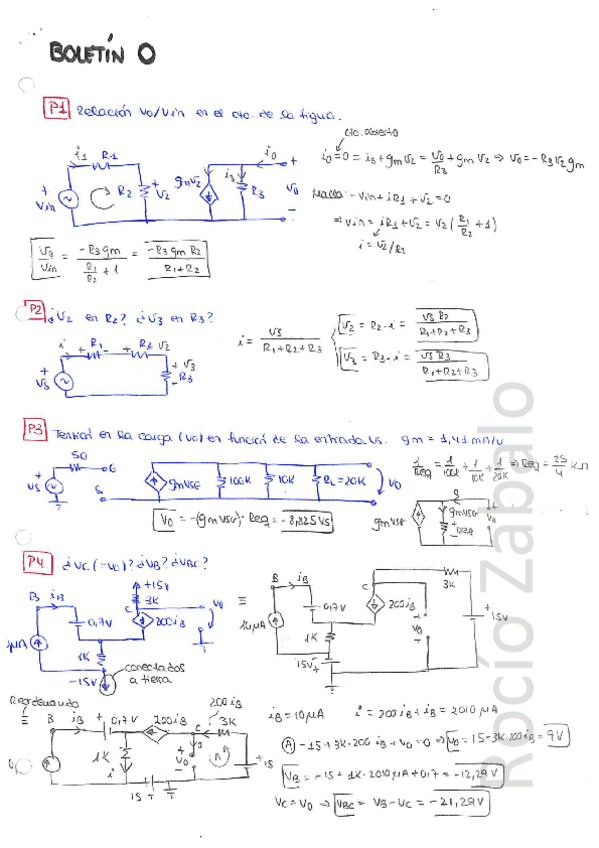 BOLETÍN 0
P1 Relación vo/vin en el cto. de la figura.
cto. abierto
i0=0 = i3+gmv2 = v0/R3 + gmv2 ⇒ v0=-R3v2gm
i1 R1 R2 + v2 - gmv2 i3 R3 i0 + v0 -
+ vin -
malla: -vin+iR1+v2=0
⇒ vin = iR1+v2 = v2(R1/R2 + 1)
i = v2/R2
v0/vin = -R3gm / (R1/R2 + 1) = -R3gmR2 / (R1+R2)
P2 ¿v2 en R2? ¿v3 en R3?
i + R1 - + R2 v2 + v3 - R3
+ vs -
i = vs / (R1+R2+R3)
v2 = R2·i = vsR2 / (R1+R2+R3)
v3 = R3·i = vsR3 / (R1+R2+R3)
P3 Tensión en la carga (vo) en función de la entrada vs. gm = 1,41 mA/V
50 G + vs - S gmvsg 100K 10K RL=20K vo
1/Req = 1/100K + 1/10K + 1/20K ⇒ Req = 25/4 kΩ
V0 = -(gmvsg)·Req = -8,825vs
gmvsg gmvsg Req vo
P4 ¿vc(=vo)? ¿vB? ¿vBC?
B iB 0,7V +15V 3K C 200iB vo
µA 1K -15V conectados a tierra
≡
B iB 0,7V C 200iB 3K 15V
10µA 1K 15V vo
Reordenando
≡ B iB 0,7V 200iB C 200iB 3K
1K i vo 15 15
iB=10µA i = 200iB+iB = 2010µA
A -15+3K·200iB+vo=0 ⇒ vo=15-3K·200iB = 9V
VB = -15+1K·2010µA+0,7 = -12,29V
VC=VO ⇒ VBC = VB-VC = -21,29V
Rocío Zabalo